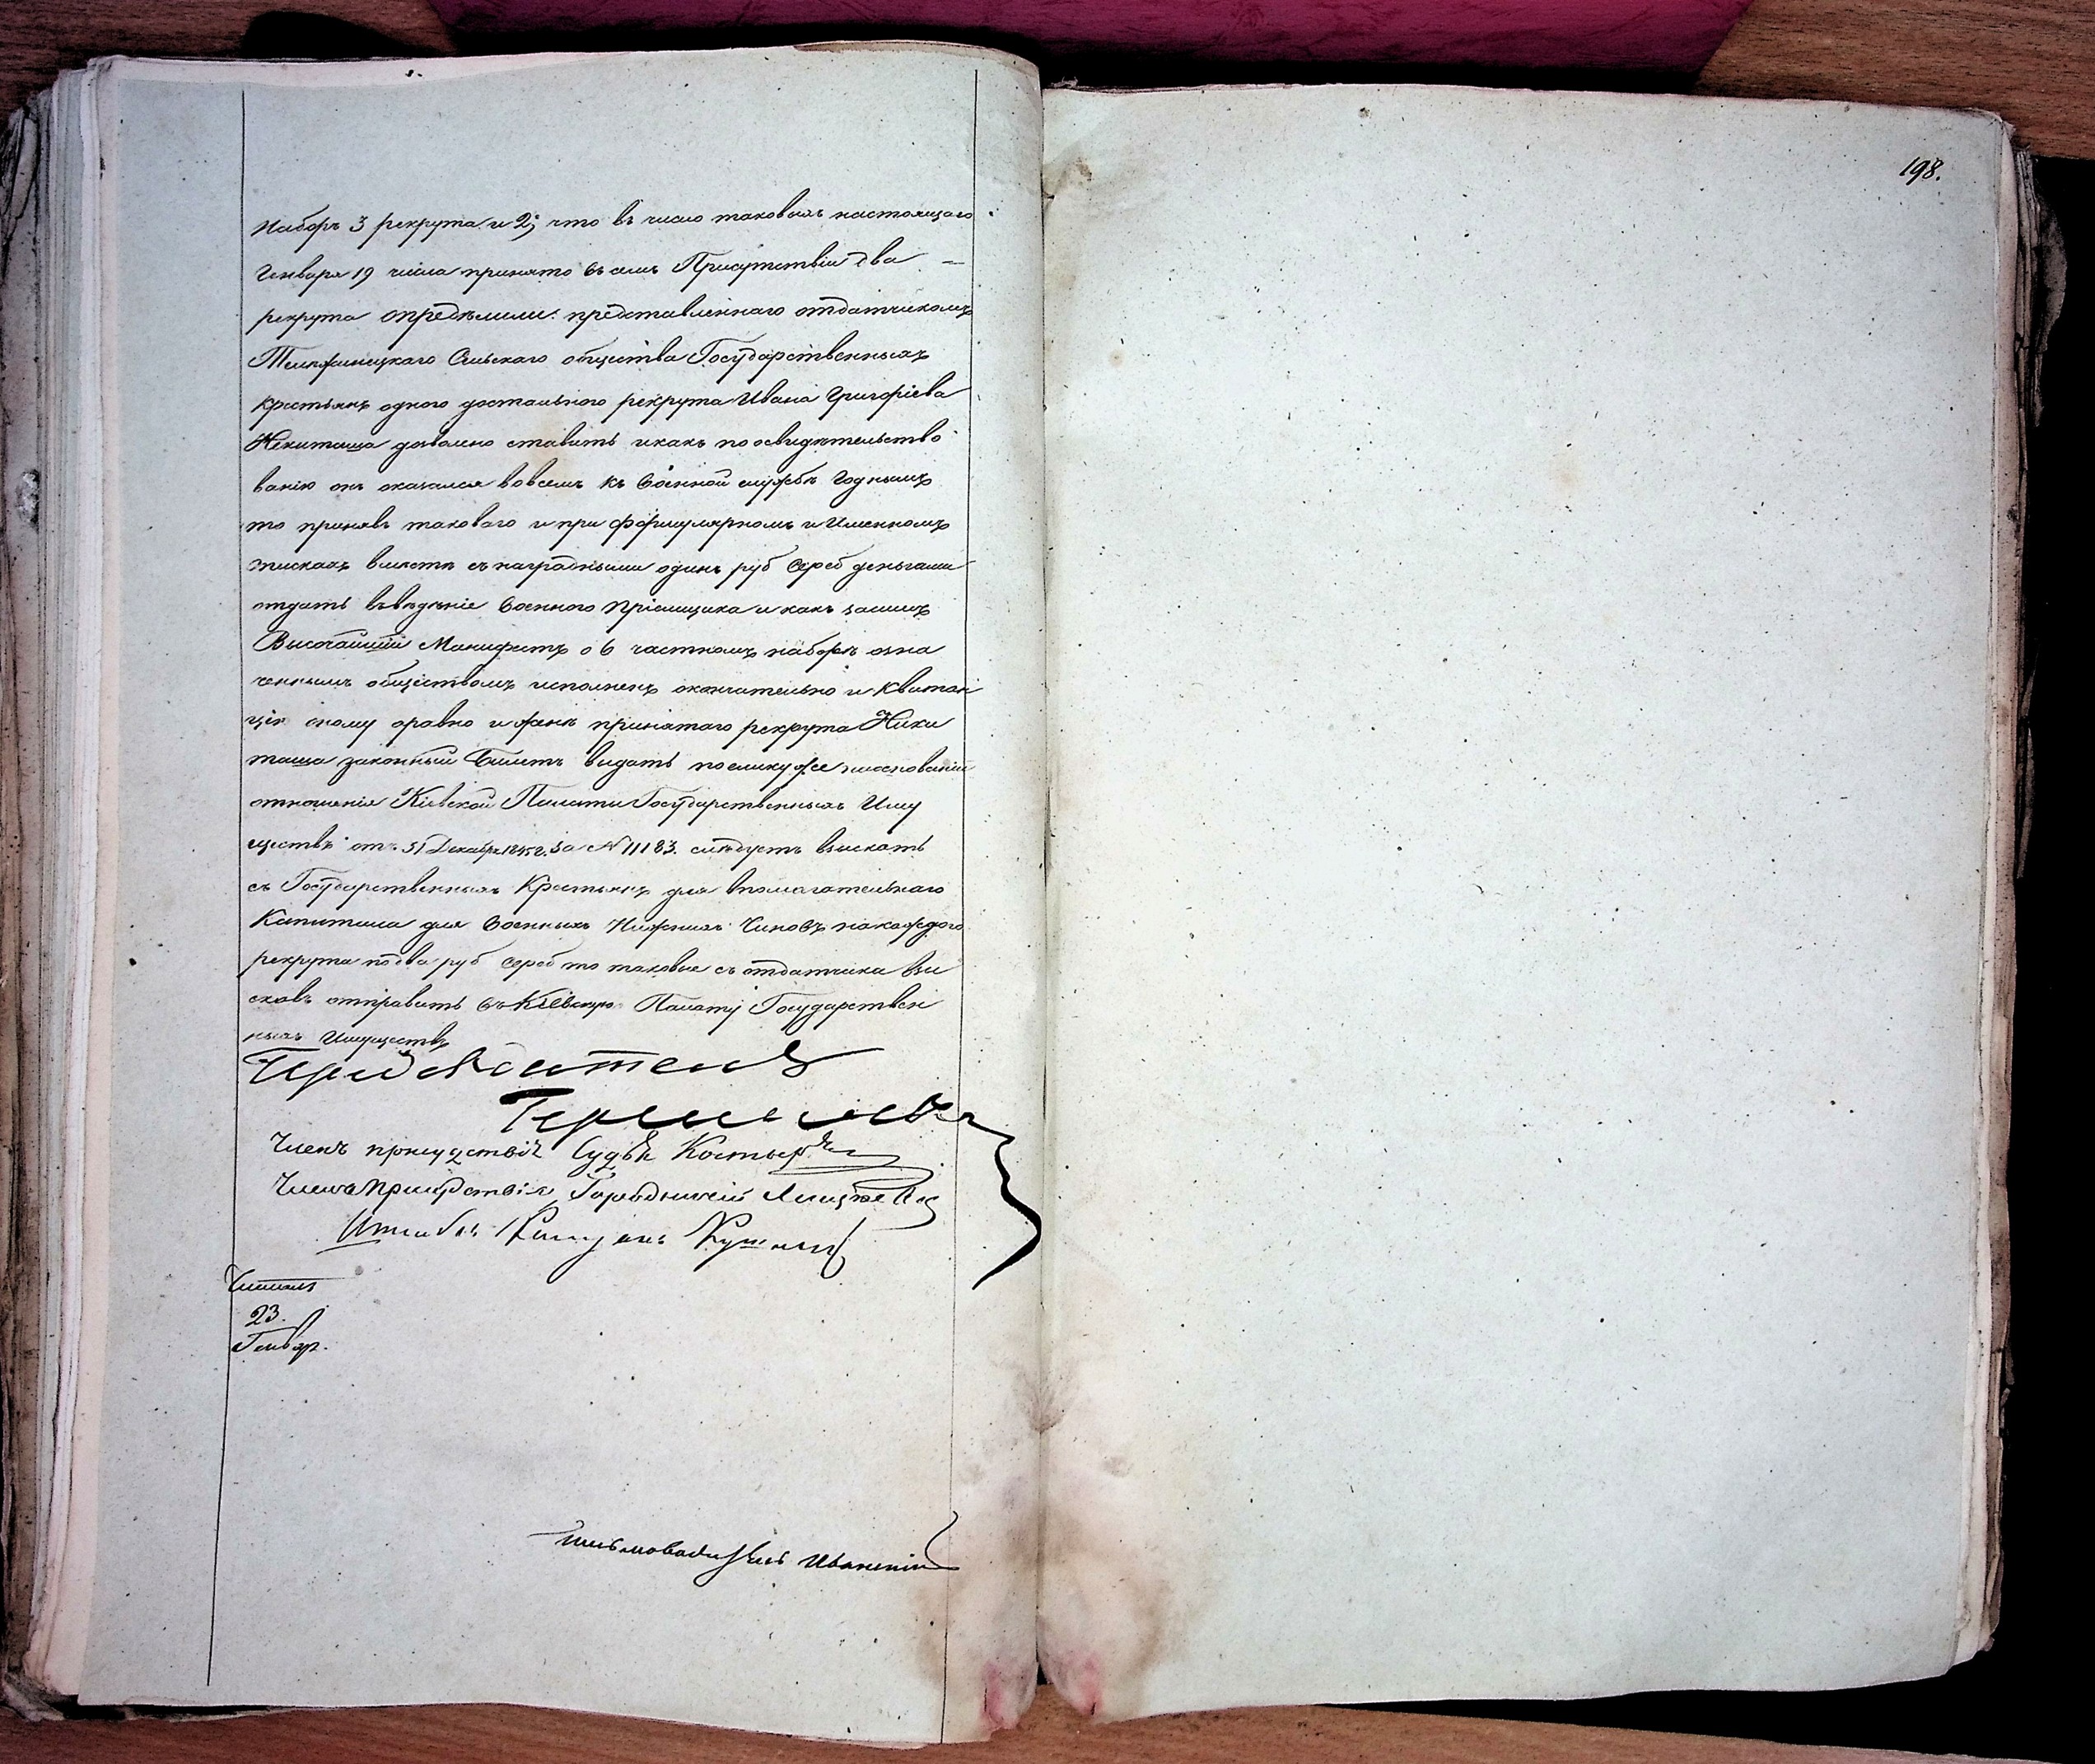 наборъ 3 рекрута и 2; что въ число таковыхъ настоящаго
Генваря 19 числа принято въ семъ Присутствіи два
рекрута определили: представленнаго отдатчикомъ
Сельскаго общества Государственныхъ
крестьянъ одного достальнаго рекрута Ивана Григоріева
Никиташа дозволено ставить и какъ по освидѣтельство
ванію онъ оказался вовсемъ къ военной службѣ годнымъ
то принявъ таковаго и при формулярномъ и Именномъ
спискахъ вместѣ съ наградными одинъ руб сереб деньгами
отдать въ вѣдѣніе военного Пріемщика и какъ замъ
Высочайшій Манифестъ о 6 частномъ наборѣ озна
ченнымъ обществомъ исполненъ окончательно и Квитан
цію оному оравно и женѣ принятаго рекрута Ники
таша законный билетъ выдать поелику же наосновании
отношенія Кіевской Палаты Государственныхъ Иму
ществъ отъ 31 Декабря за № 11183. слѣдуетъ взыскать
съ Государственныхъ Крестьянъ для вспомагательнаго
Капитала для Военныхъ Нижнихъ Чиновъ накаждого
рекрута по два руб сереб то таковые съ отдатчика взы
скавъ отправить въ Кіевскую Палату Государствен
ныхъ Имуществъ
Предсѣдатель
Членъ присудствія Судья
Членъ присудствія Городничій
Штабсъ Капитанъ
Читалъ
23.
Генвар.
письмоводитель Иванскій
198.